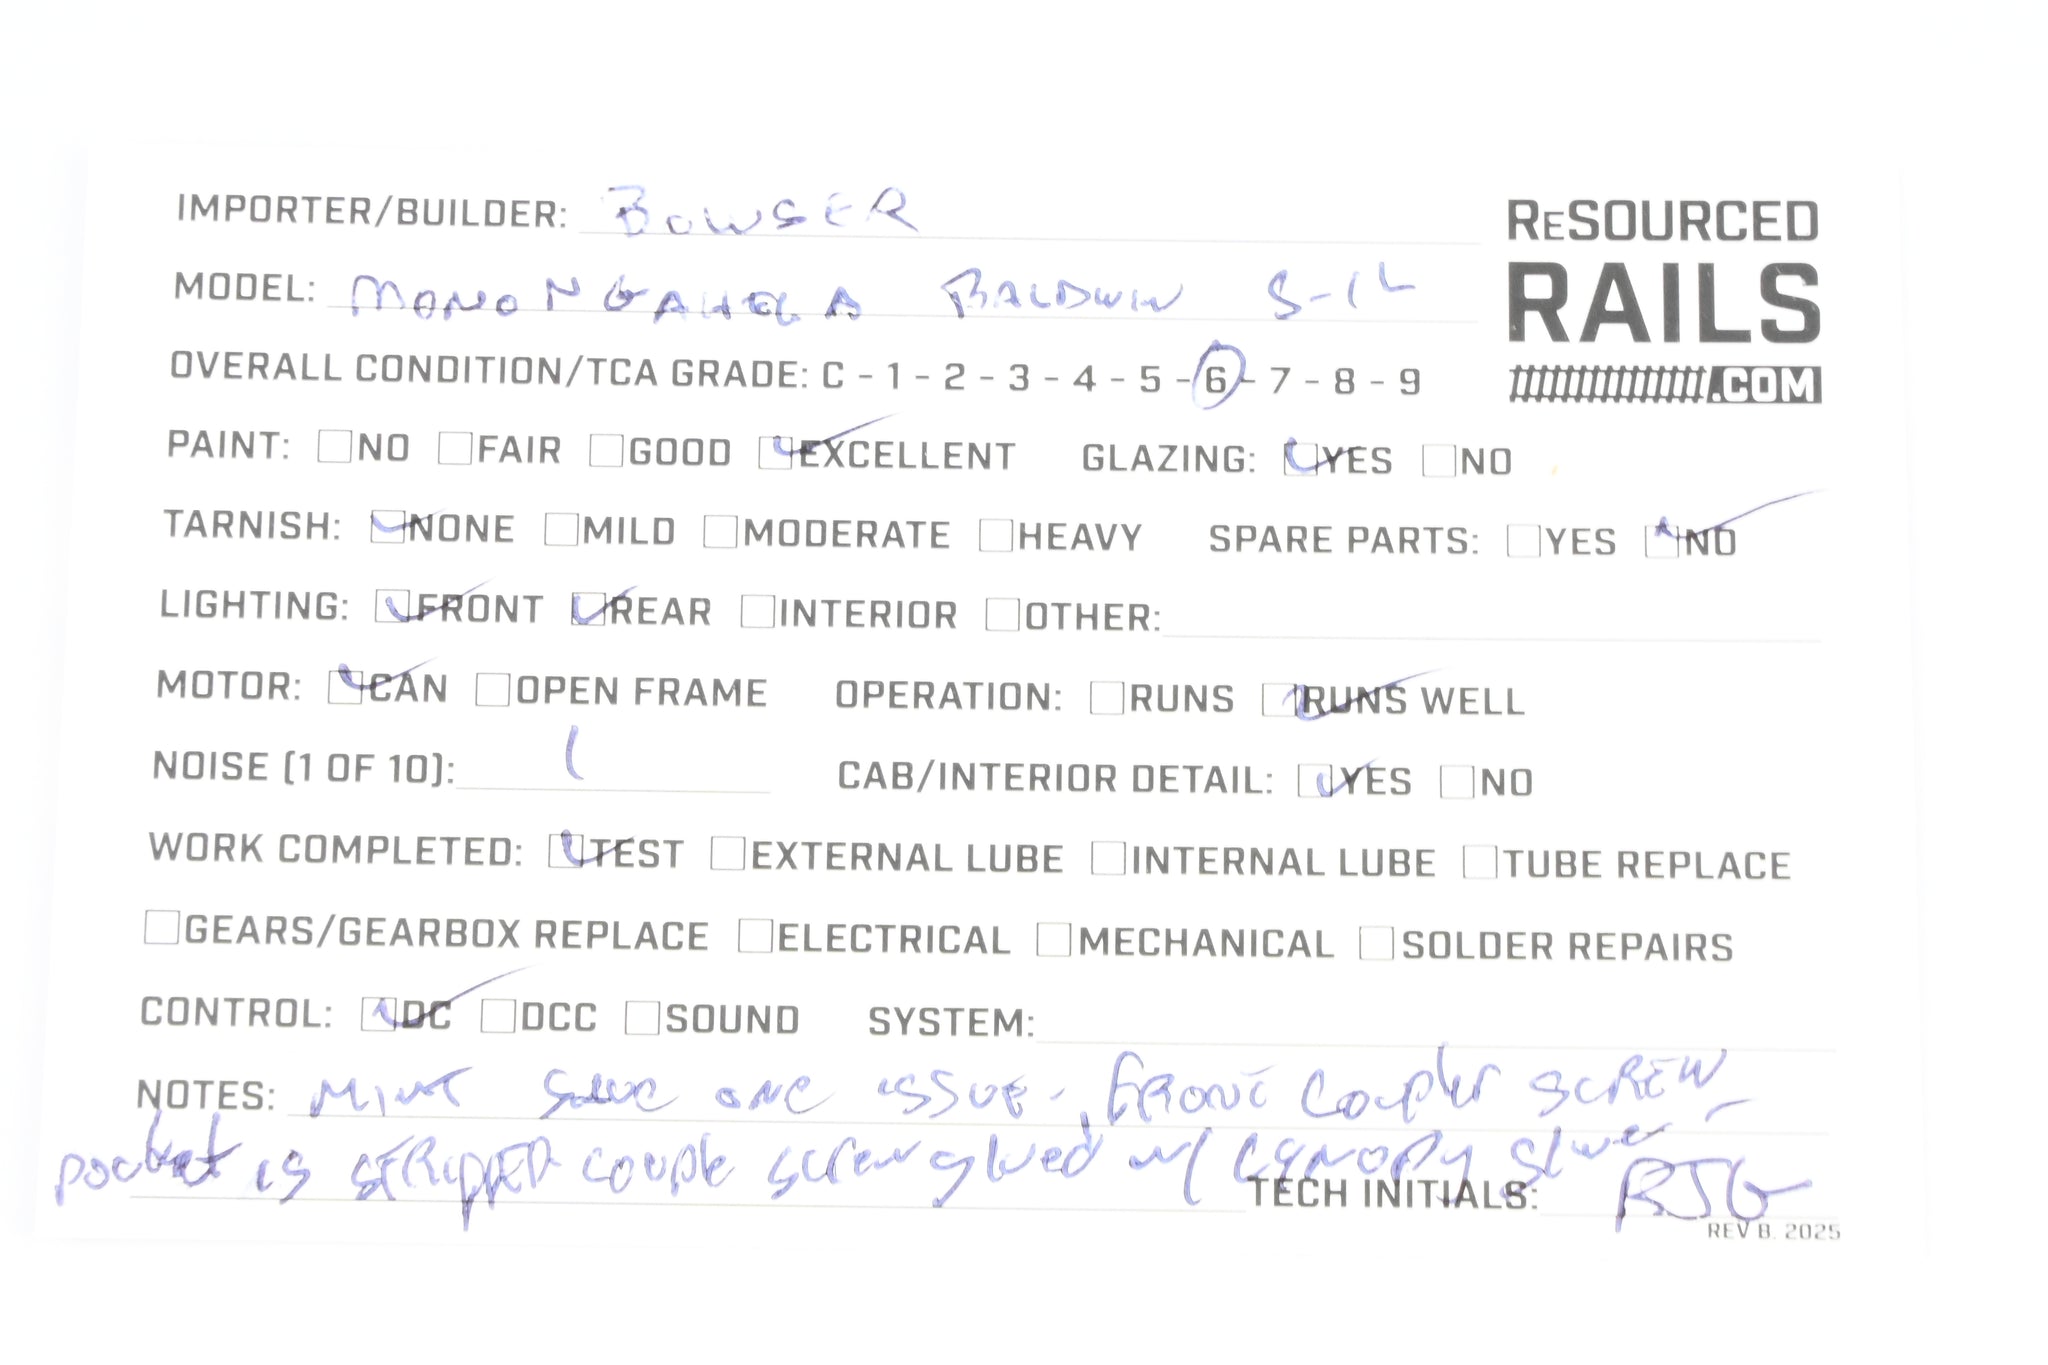 IMPORTER/BUILDER: BOWSER
ReSOURCED
RAILS
.COM
MODEL: MONONGAHELA BALDWIN S-12
OVERALL CONDITION/TCA GRADE: C - 1 - 2 - 3 - 4 - 5 - 6 - 7 - 8 - 9
PAINT: NO FAIR GOOD EXCELLENT GLAZING: YES NO
TARNISH: NONE MILD MODERATE HEAVY SPARE PARTS: YES NO
LIGHTING: FRONT REAR INTERIOR OTHER:
MOTOR: CAN OPEN FRAME OPERATION: RUNS RUNS WELL
NOISE (1 OF 10): 1 CAB/INTERIOR DETAIL: YES NO
WORK COMPLETED: TEST EXTERNAL LUBE INTERNAL LUBE TUBE REPLACE
GEARS/GEARBOX REPLACE ELECTRICAL MECHANICAL SOLDER REPAIRS
CONTROL: DC DCC SOUND SYSTEM:
NOTES: MINT save one ISSUE - FRONT Coupler SCREW
pocket is STRIPPED couple screw glued w/ CANOPY
TECH INITIALS: RJG
REV B. 2025